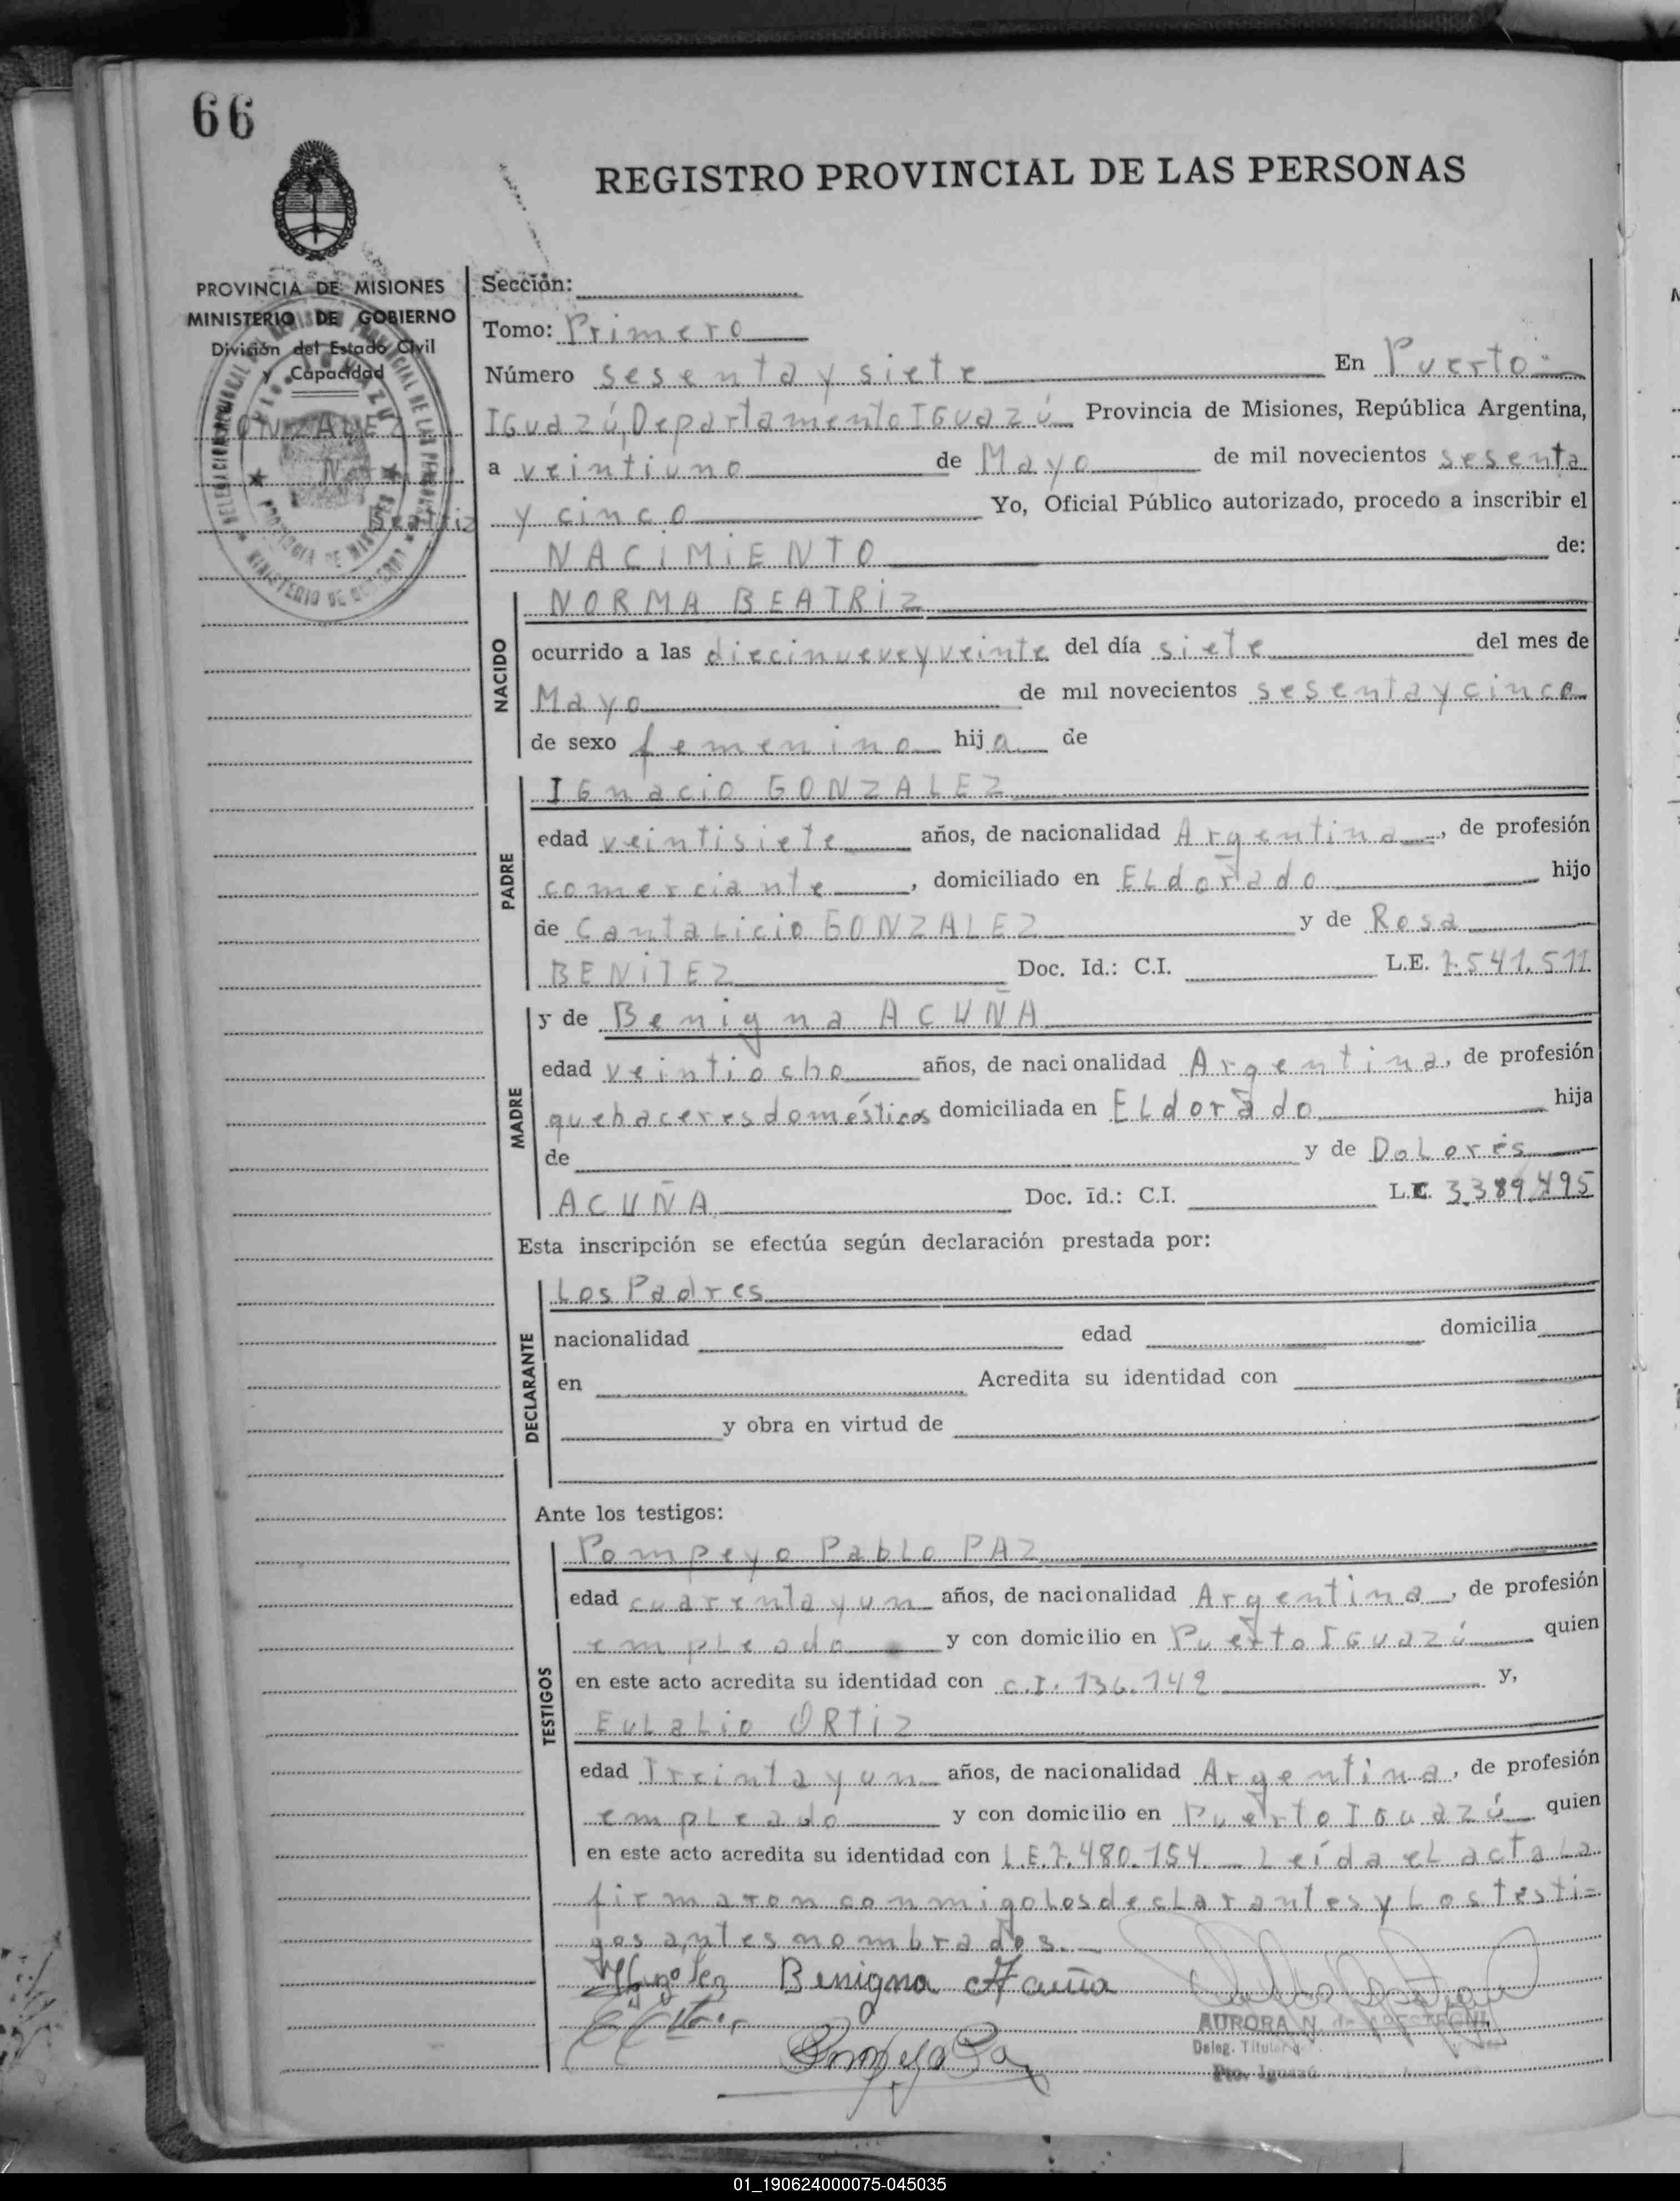 66
REGISTRO PROVINCIAL DE LAS PERSONAS
PROVINCIA DE MISIONES
MINISTERIO DE GOBIERNO
División del Estado Civil
y Capacidad
GONZALEZ
Beatriz
Sección:
Tomo: Primero
Número sesenta y siete En Puerto
IGuazú, Departamento IGuazú Provincia de Misiones, República Argentina,
a veintiuno de Mayo de mil novecientos sesenta
y cinco Yo, Oficial Público autorizado, procedo a inscribir el
NACIMIENTO de:
NACIDO
NORMA BEATRIZ
ocurrido a las diecinueve y veinte del día siete del mes de
Mayo de mil novecientos sesenta y cinco
de sexo femenino hija de
PADRE
IGnacio GONZALEZ
edad veintisiete años, de nacionalidad Argentina, de profesión
comerciante, domiciliado en ELdorado hijo
de CantaLicio GONZALEZ y de Rosa
BENITEZ Doc. Id.: C.I. L.E. 7.541.511
MADRE
y de Benigna ACUÑA
edad veintiocho años, de nacionalidad Argentina, de profesión
quehaceres domésticos domiciliada en ELdorado hija
de y de DoLores
ACUÑA Doc. Id.: C.I. L.C. 3.389.495
Esta inscripción se efectúa según declaración prestada por:
DECLARANTE
Los Padres
nacionalidad edad domicilia
en Acredita su identidad con
y obra en virtud de
Ante los testigos:
TESTIGOS
Pompeyo PabLo PAZ
edad cuarenta y un años, de nacionalidad Argentina, de profesión
empLeado y con domicilio en Puerto IGuazú quien
en este acto acredita su identidad con C.I. 136.142 y,
EuLaLio ORTIZ
edad Treinta y un años, de nacionalidad Argentina, de profesión
empLeado y con domicilio en Puerto IGuazú quien
en este acto acredita su identidad con L.E. 7.480.154. Leída eL acta La
firmaron conmigo Los decLarantes y Los testi=
gos antes nombrados.
Benigna Acuña
Pompeyo Paz
AURORA N. de
Deleg. Titular
Pto. Iguazú
01_190624000075-045035